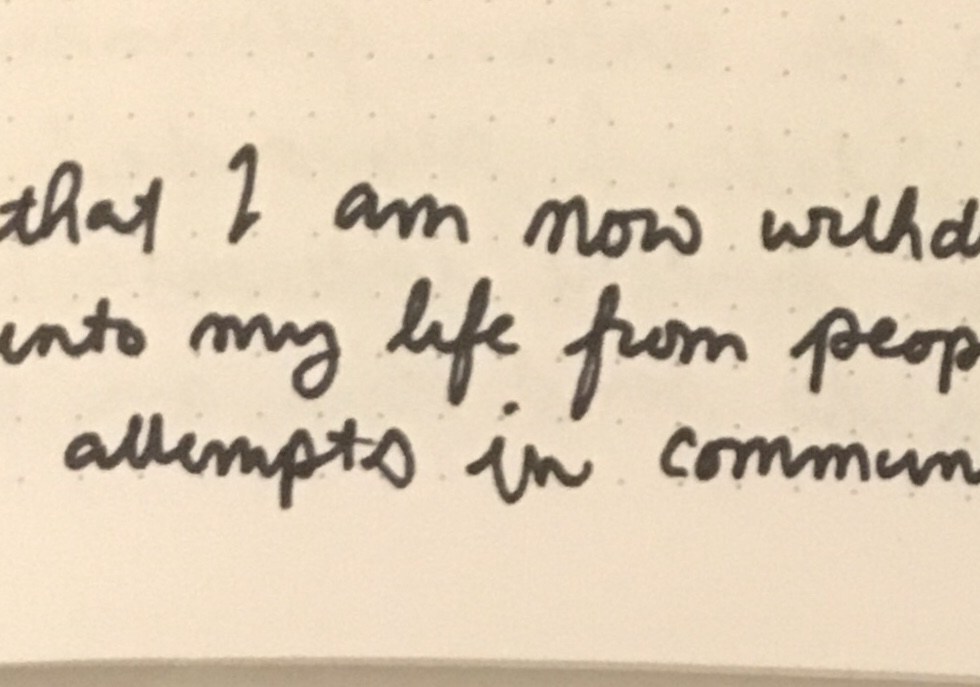 that I am now withd
into my life from peop
attempts in commun